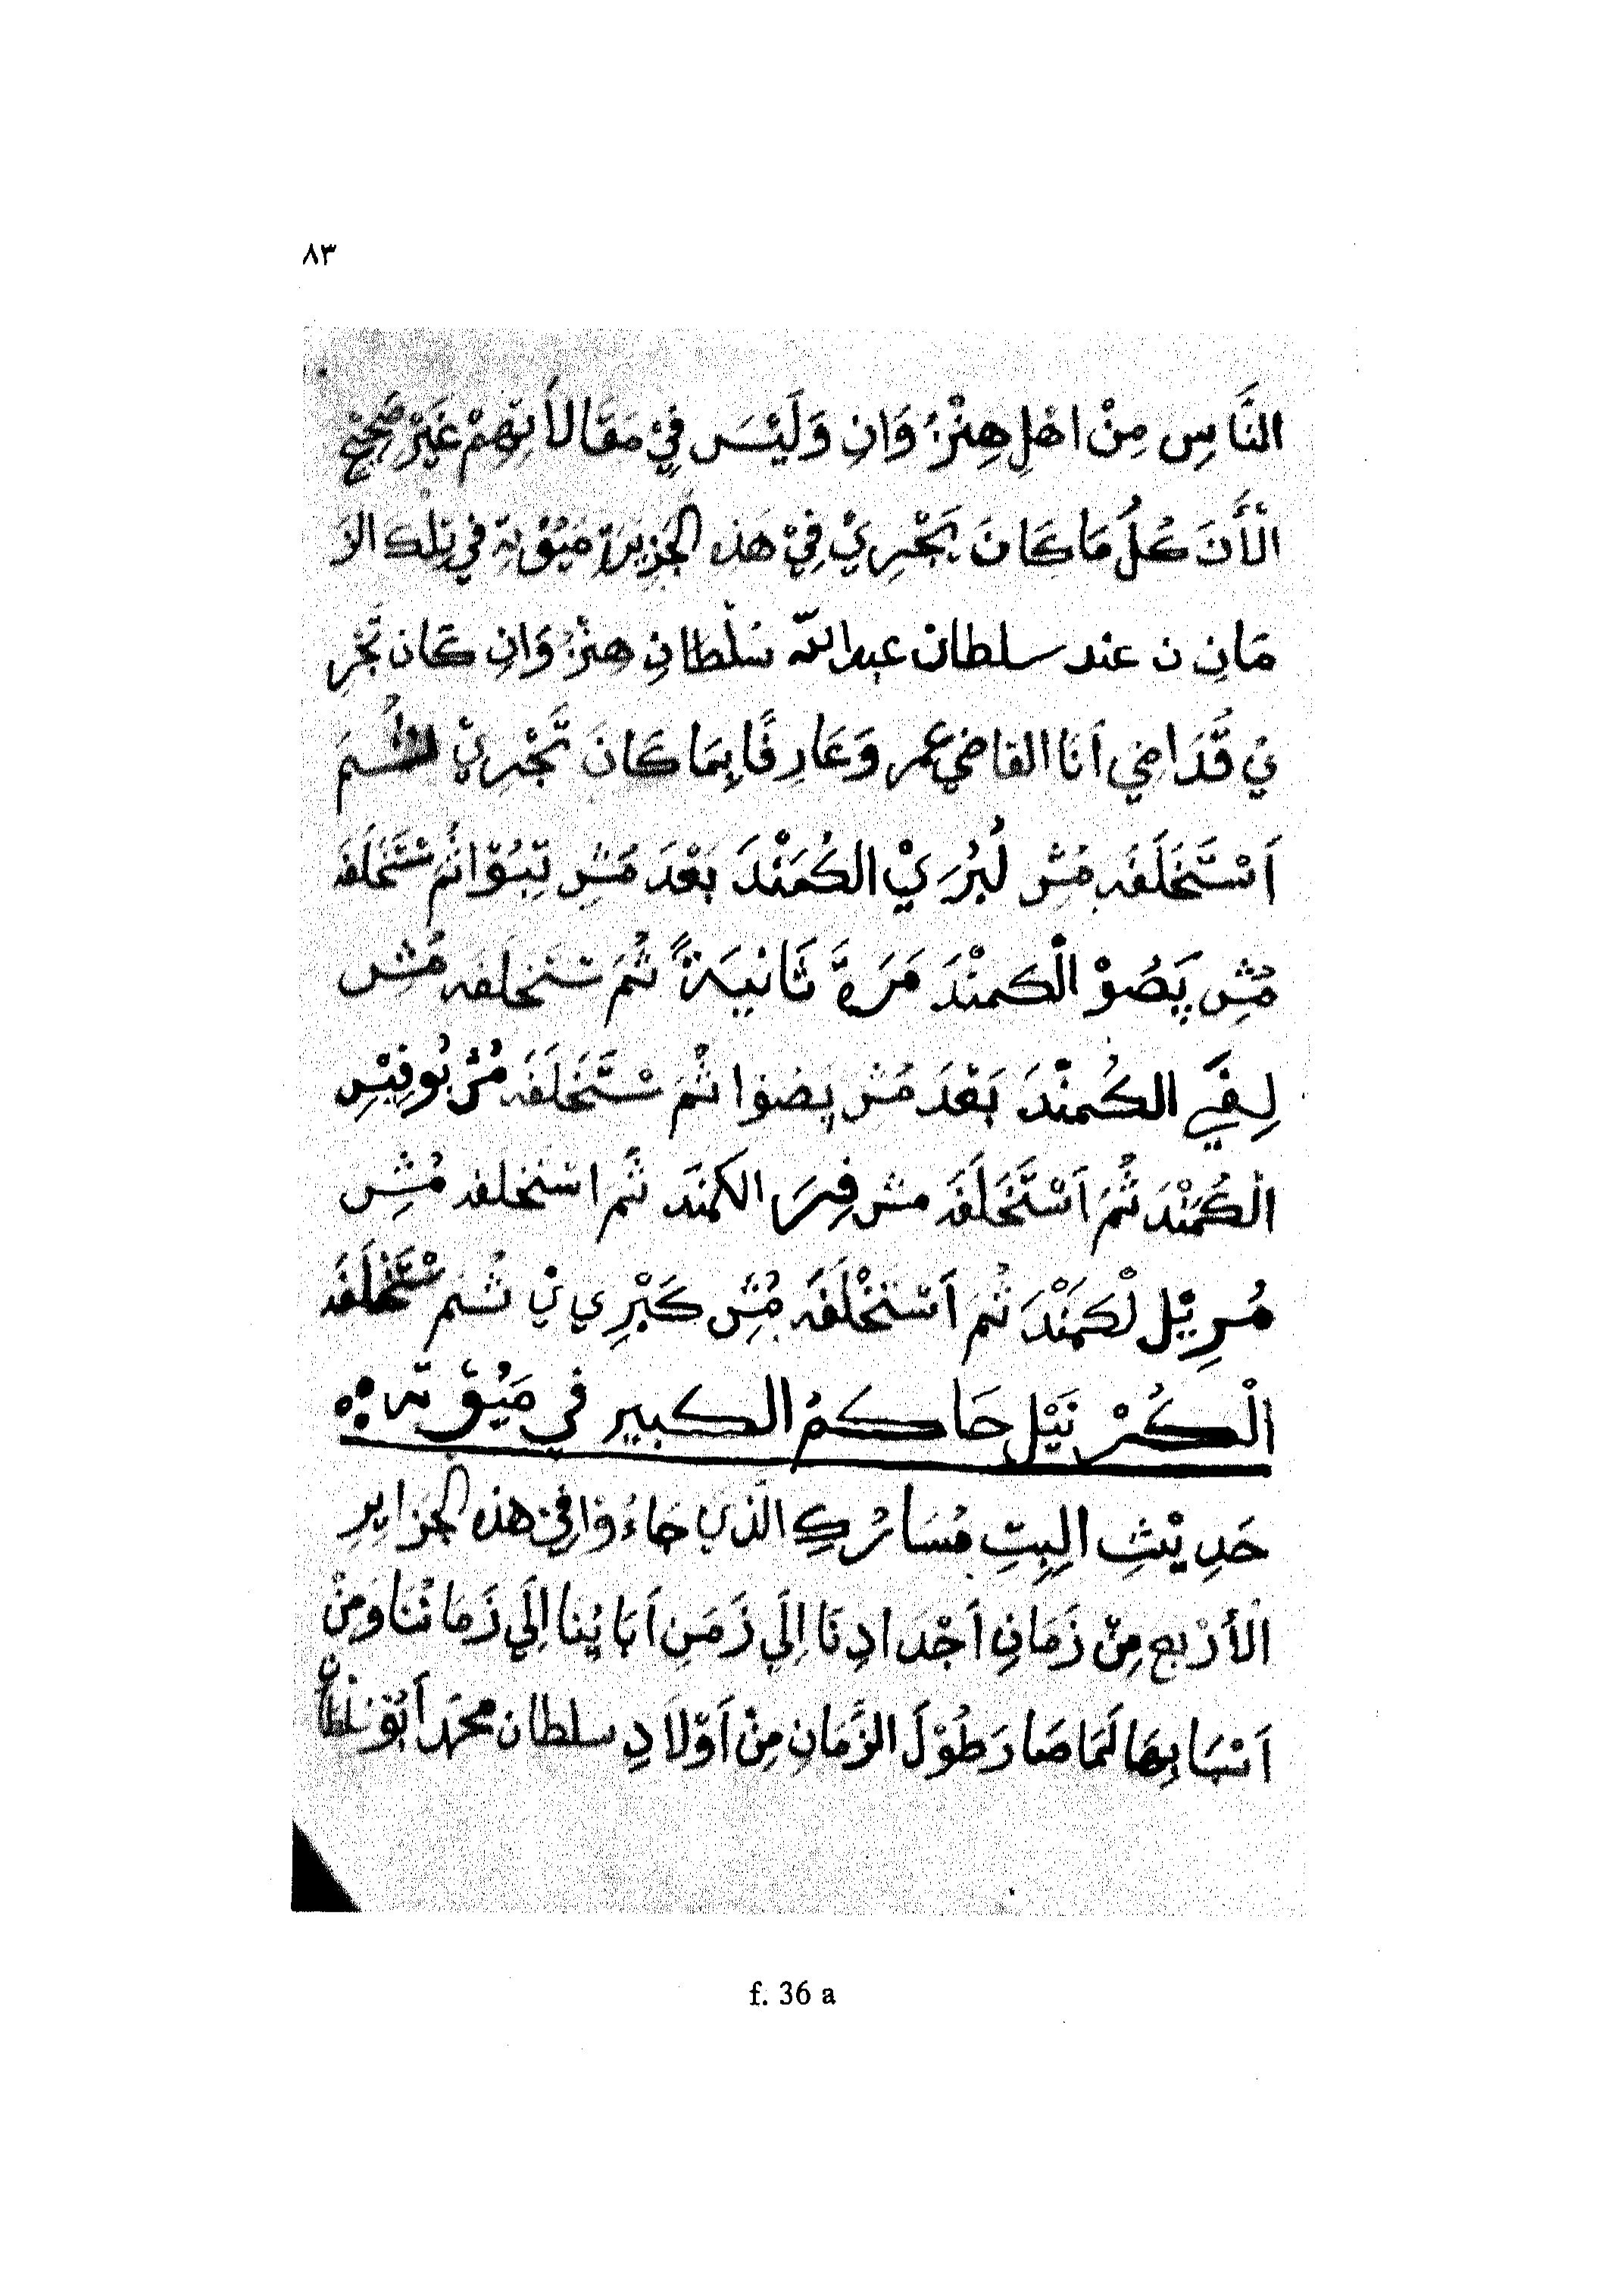 ٨٣
النَّاسِ مِنْ اهْلِ هِنْزُ وَانِ وَلَيْسَ فِيْ مَقَالاَتِهِمْ غَيْرَ صَحِيْحٍ
الْأَنَ كُلُ مَا كَانَ يَجْرِيْ فِيْ هَذه الجَزِيرَة مَيُوْتَه فِي تِلْكَ الزَ
مَانِ ن عند سلطان عبدالله سُلْطانِ هِنْزُ وَانِ كَان تَجْرِ
يْ قَدَامِي اَنَا القاضي عمر وَعَارِفًا بِمَا كَانَ تَجْرِيْ ثُمَ
اَسْتَخَلَفَه مُشِ لُبُرَيْ الكُمَنْدَ بَعْدَ مُشِ تِبُوْا ثُمَ سْتَخَلَفَه
مُشِ پَصُوْ الْكمنْدَ مَرَةً ثَانيَةً ثُمَ سْتَخلَفه مُشِ
لِفَيْ الكُمنْدَ بَعْدَ مُشِ پصُوا ثُمَ سْتَخَلَفَه مُشْ بُوفِيْسِ
الكُمَنْدَ ثُمَ اَسْتَخَلَفَه مش فِرَ الكمَندَ ثُمَ اسْتَخلفه مُشِ
مُرِيْل لْكَمَنْدَ ثُمَ اَسْتَخْلَفَه مُشِ كَبْرِي يْ ثُم سْتَخَلَفَه
الْكُرْنَيْل حَاكمُ الكبير في مَيُوْتَه
حَدِيْثِ البِتِ مُسَامُرُكِ الَّذي جَاءُوْا فِيْ هذه الجزايرِ
الأرْبع مِنْ زَمَانِ اَجْدَادِنَا اِلَي زَمَنِ اَبَايُنا اِلَي زَمَانْنَا وَمِنْ
اَسْبَابِهَا لَمَا صَارَ طُوْلَ الزَّمَانِ مِنْ اَوْلاَدِ سلطان محمَّد اَبُوْ سُلطان
f. 36 a